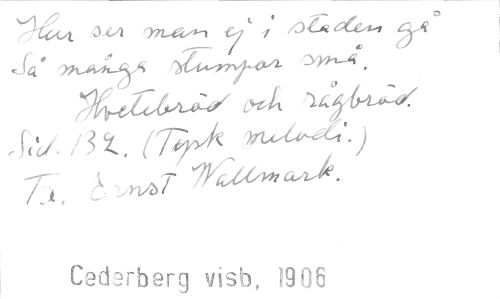 Hur ser man ej i staden gå
Så många stumpar små.
Hvetebröd och rågbröd.
Sid. 132. (Tysk melodi.)
T.x. Ernst Wallmark.
Cederberg visb, 1906